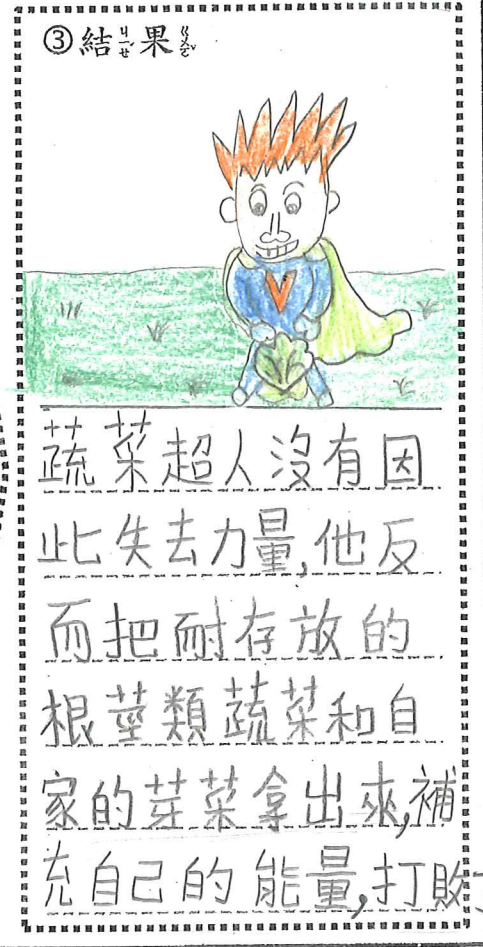 ③結ㄐㄧㄝˊ果ㄍㄨㄛˇ
V
蔬菜超人沒有因
此失去力量,他反
而把耐存放的
根莖類蔬菜和自
家的芽菜拿出來,補
充自己的能量,打敗